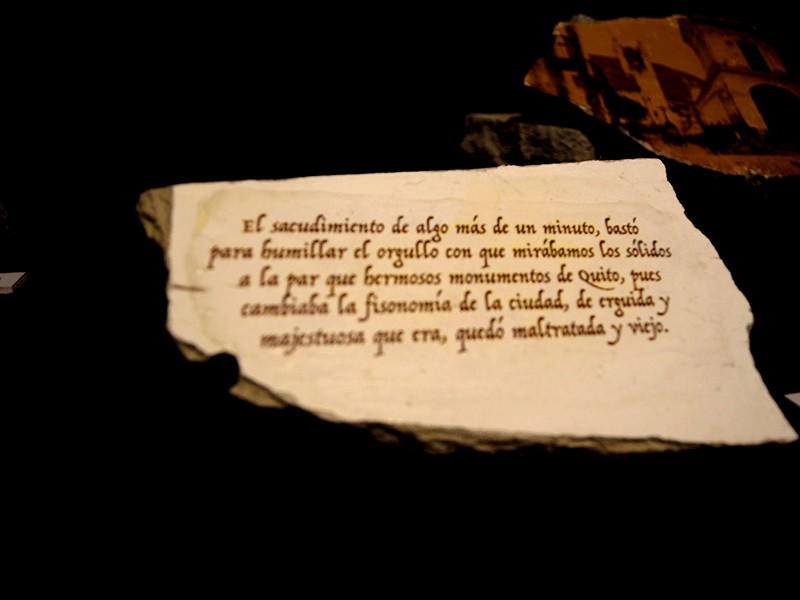 El sacudimiento de algo más de un minuto, bastó
para humillar el orgullo con que mirábamos los sólidos
a la par que hermosos monumentos de Quito, pues
cambiaba la fisonomía de la ciudad, de erguida y
majestuosa que era, quedó maltratada y viejo.